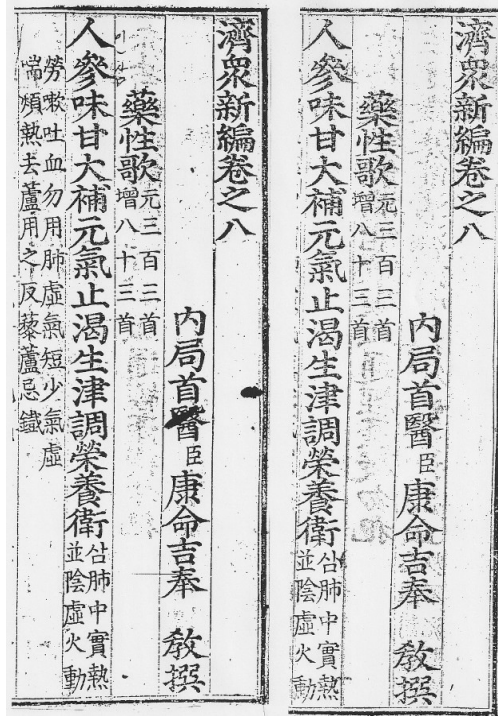 濟衆新編卷之八
內局首醫臣康命吉奉 教撰
藥性歌 元三百三首
增八十三首
人參味甘大補元氣止渴生津調榮養衛 삼肺中實熱
並陰虛火動
濟衆新編卷之八
內局首醫臣康命吉奉 教撰
藥性歌 元三百三首
增八十三首
人參味甘大補元氣止渴生津調榮養衛 삼肺中實熱
並陰虛火動
勞嗽吐血勿用肺虛氣短少氣虛
喘煩熱去蘆用之反藜蘆忌鐵